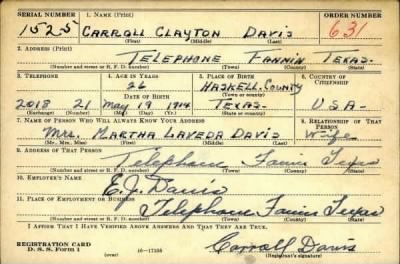 SERIAL NUMBER 1. NAME (Print) ORDER NUMBER
1525 CARROLL CLAYTON DAVIS 631
(First) (Middle) (Last)
2. ADDRESS (Print)
TELEPHONE FANNIN TEXAS.
(Number and street or R. F. D. number) (Town) (County) (State)
3. TELEPHONE 4. AGE IN YEARS 5. PLACE OF BIRTH 6. COUNTRY OF CITIZENSHIP
26 HASKELL. COUNTY
(Town or county)
2018 21 May 19 1914 TEXAS. USA-
(Exchange) (Number) (Mo.) (Day) (Yr.) (State or country)
7. NAME OF PERSON WHO WILL ALWAYS KNOW YOUR ADDRESS 8. RELATIONSHIP OF THAT PERSON
Mrs. MARTHA LAVEDA DAVIS Wife
(Mr., Mrs., Miss) (First) (Middle) (Last)
9. ADDRESS OF THAT PERSON
Telephone Fannin Texas
(Number and street or R. F. D. number) (Town) (County) (State)
10. EMPLOYER'S NAME
E.J. Davis
11. PLACE OF EMPLOYMENT OR BUSINESS
Telephone Fannin Texas
(Number and street or R. F. D. number) (Town) (County) (State)
I AFFIRM THAT I HAVE VERIFIED ABOVE ANSWERS AND THAT THEY ARE TRUE.
REGISTRATION CARD
D. S. S. Form 1 (over) 16-17105 Carroll Davis
(Registrant's signature)